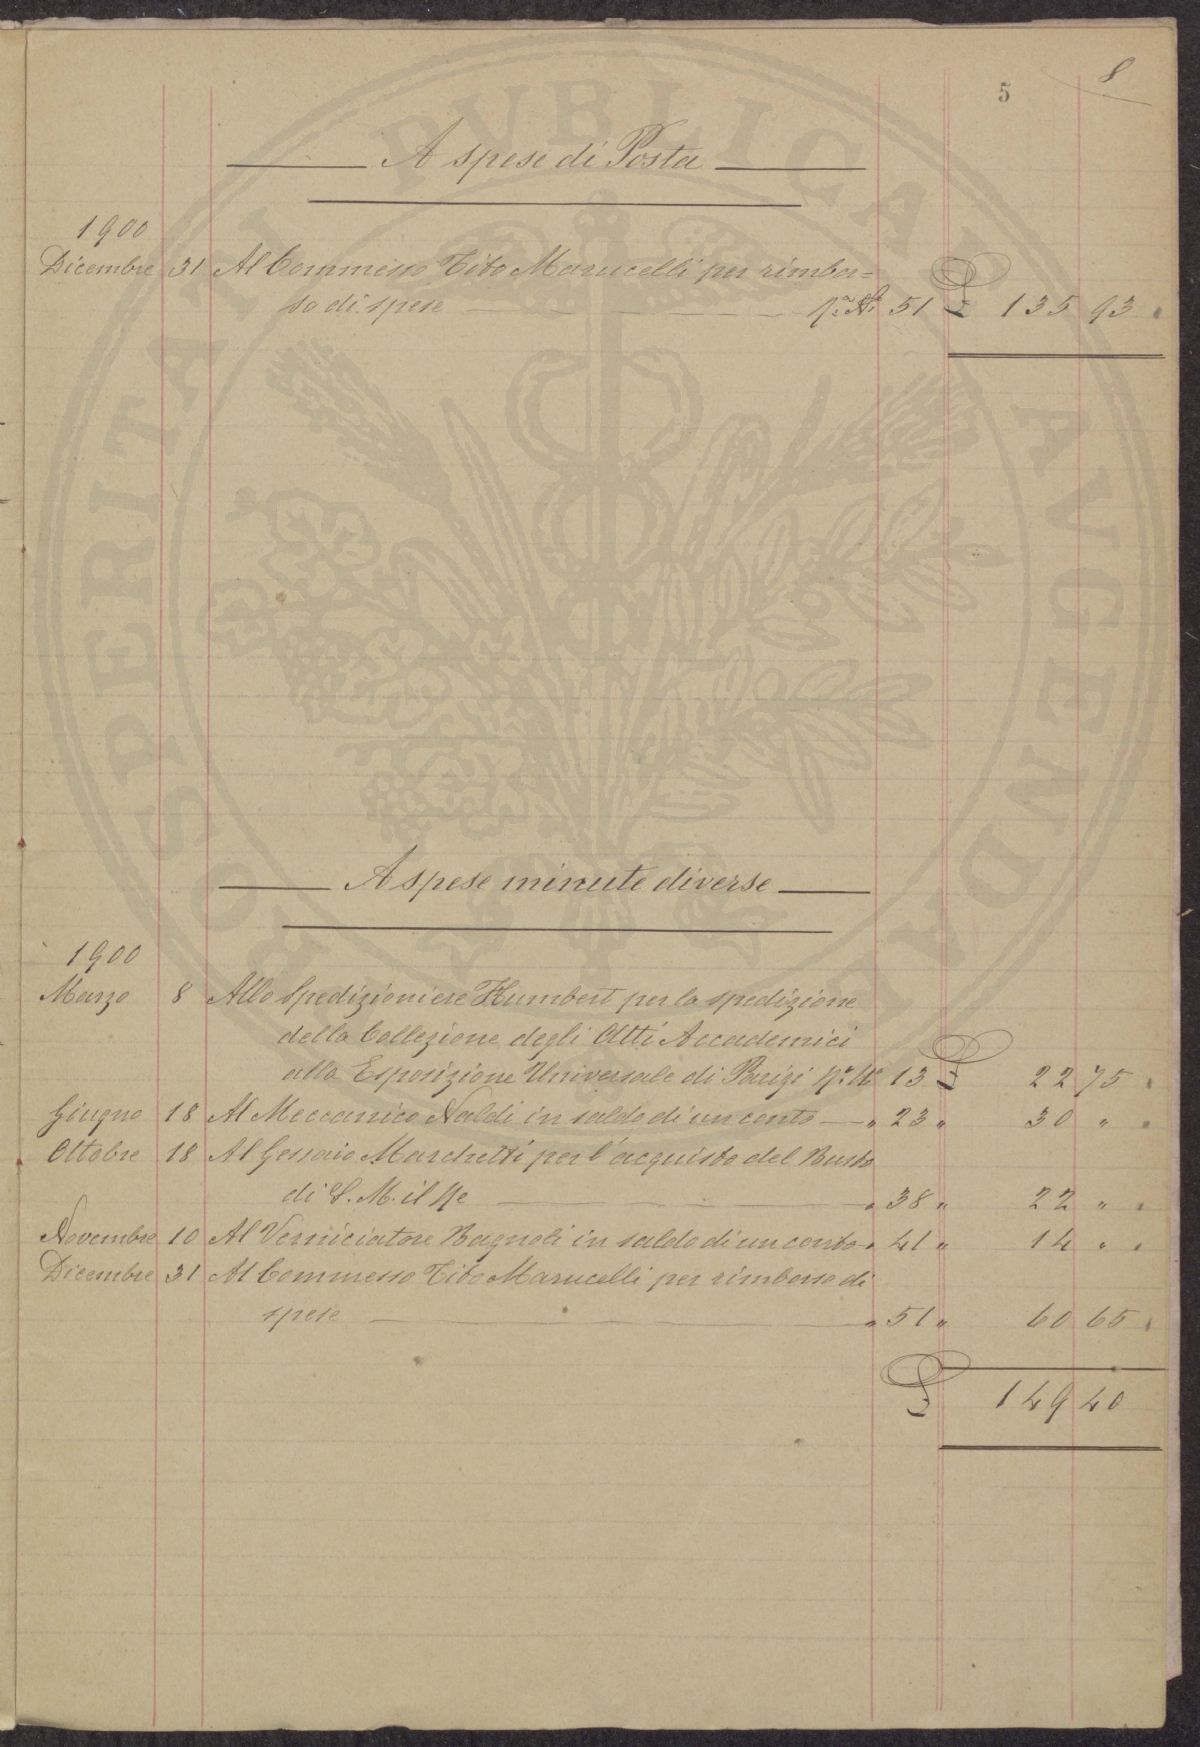 8
5
A spese di Posta
1900
Dicembre 31 Al Commesso Tito Marucelli per rimbor=
so di spese 51 £ 135 93
A spese minute diverse
1900
Marzo 8 Allo Spedizioniere Humbert per la spedizione
della Collezione degli Atti Accademici
alla Esposizione Universale di Parigi 13 £ 22 75
Giugno 18 Al Meccanico Naldi in saldo di un conto — " 23 " 30 "
Ottobre 18 Al Gessaio Marchetti per l'acquisto del Busto
di S. M. il Re " 38 " 22 "
Novembre 10 Al Verniciatore Bagnoli in saldo di un conto " 41 " 14 "
Dicembre 31 Al Commesso Tito Marucelli per rimborso di
spese " 51 " 60 65
£ 149 40
PROSPERITATI PVBLICAE AVGENDAE